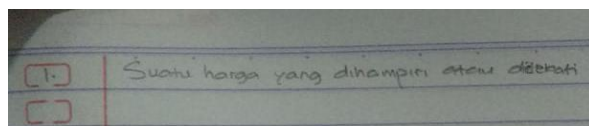 1. Suatu harga yang dihampiri atau didekati